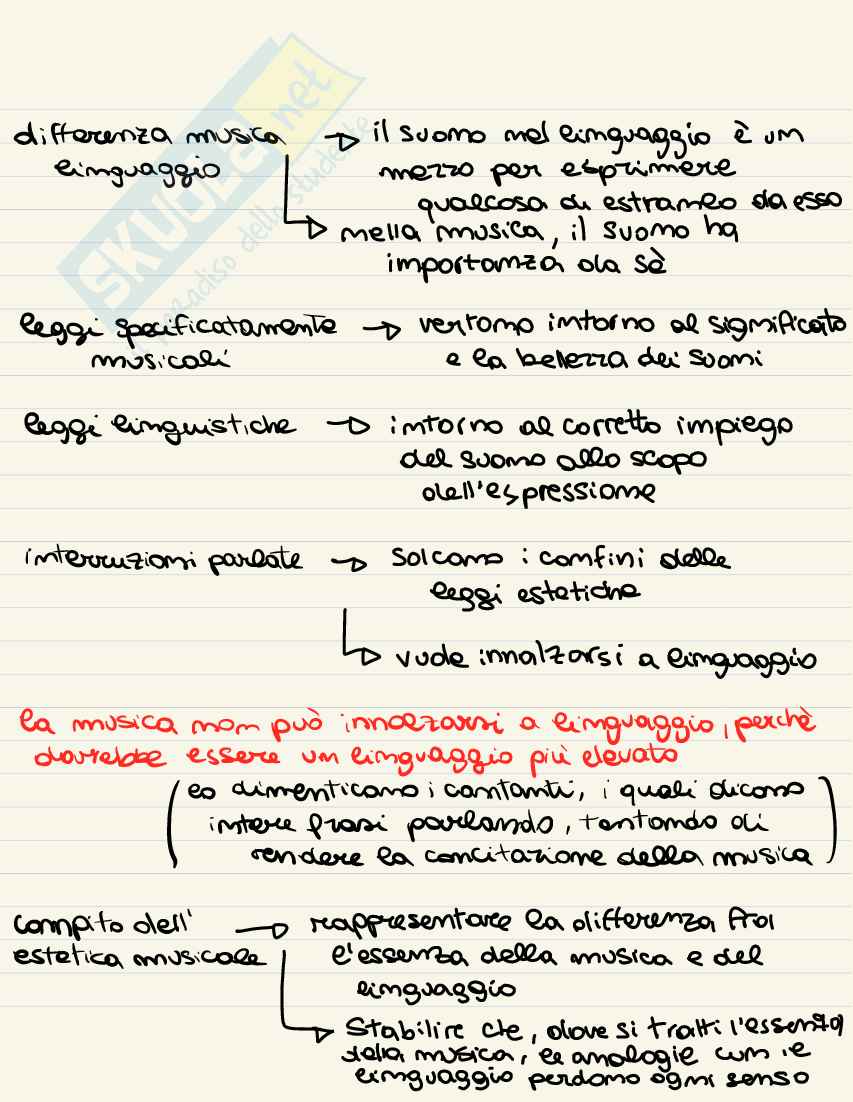 SKUOLA.net
paradiso dello studente
differenza musica → il suono nel linguaggio è un
linguaggio mezzo per esprimere
qualcosa di estraneo da esso
nella musica, il suono ha
importanza da sè
leggi specificatamente → vertono intorno al significato
musicali e la bellezza dei suoni
leggi linguistiche → intorno al corretto impiego
del suono allo scopo
dell'espressione
interruzioni parlate → solcano i confini delle
leggi estetiche
→ vuole innalzarsi a linguaggio
la musica non può innalzarsi a linguaggio, perchè
dovrebbe essere un linguaggio più elevato
(lo dimenticano i cantanti, i quali dicono
intere frasi parlando, tentando di
rendere la concitazione della musica)
compito dell' → rappresentare la differenza fra
estetica musicale l'essenza della musica e del
linguaggio
→ stabilire che, dove si tratti l'essenza
della musica, le analogie con il
linguaggio perdono ogni senso